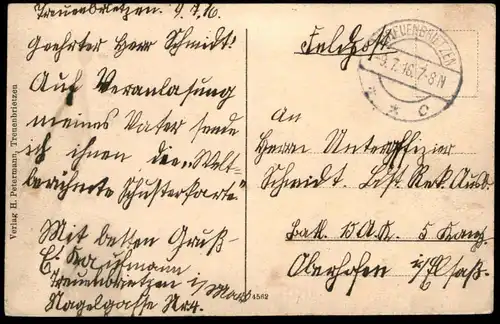 Treuenbrietzen. 9.7.16.
Geehrter Herr Schmidt!
Auf Veranlasung
meines Vater sende
ich ihnen die „Welt-
berühmte Schusterkarte“
Mit besten Gruß
E.
Treuenbrietzen i/Mark
Nagelgasse Nr4.
Verlag H. Petermann, Treuenbrietzen
4562
Feldpost
TREUENBRIETZEN
9.7.16. 7-8 N
* c
An
Herrn Unteroffizier
Schmidt. Rek.
Batl. A.K. 5
Oberhofen i/Elsaß-